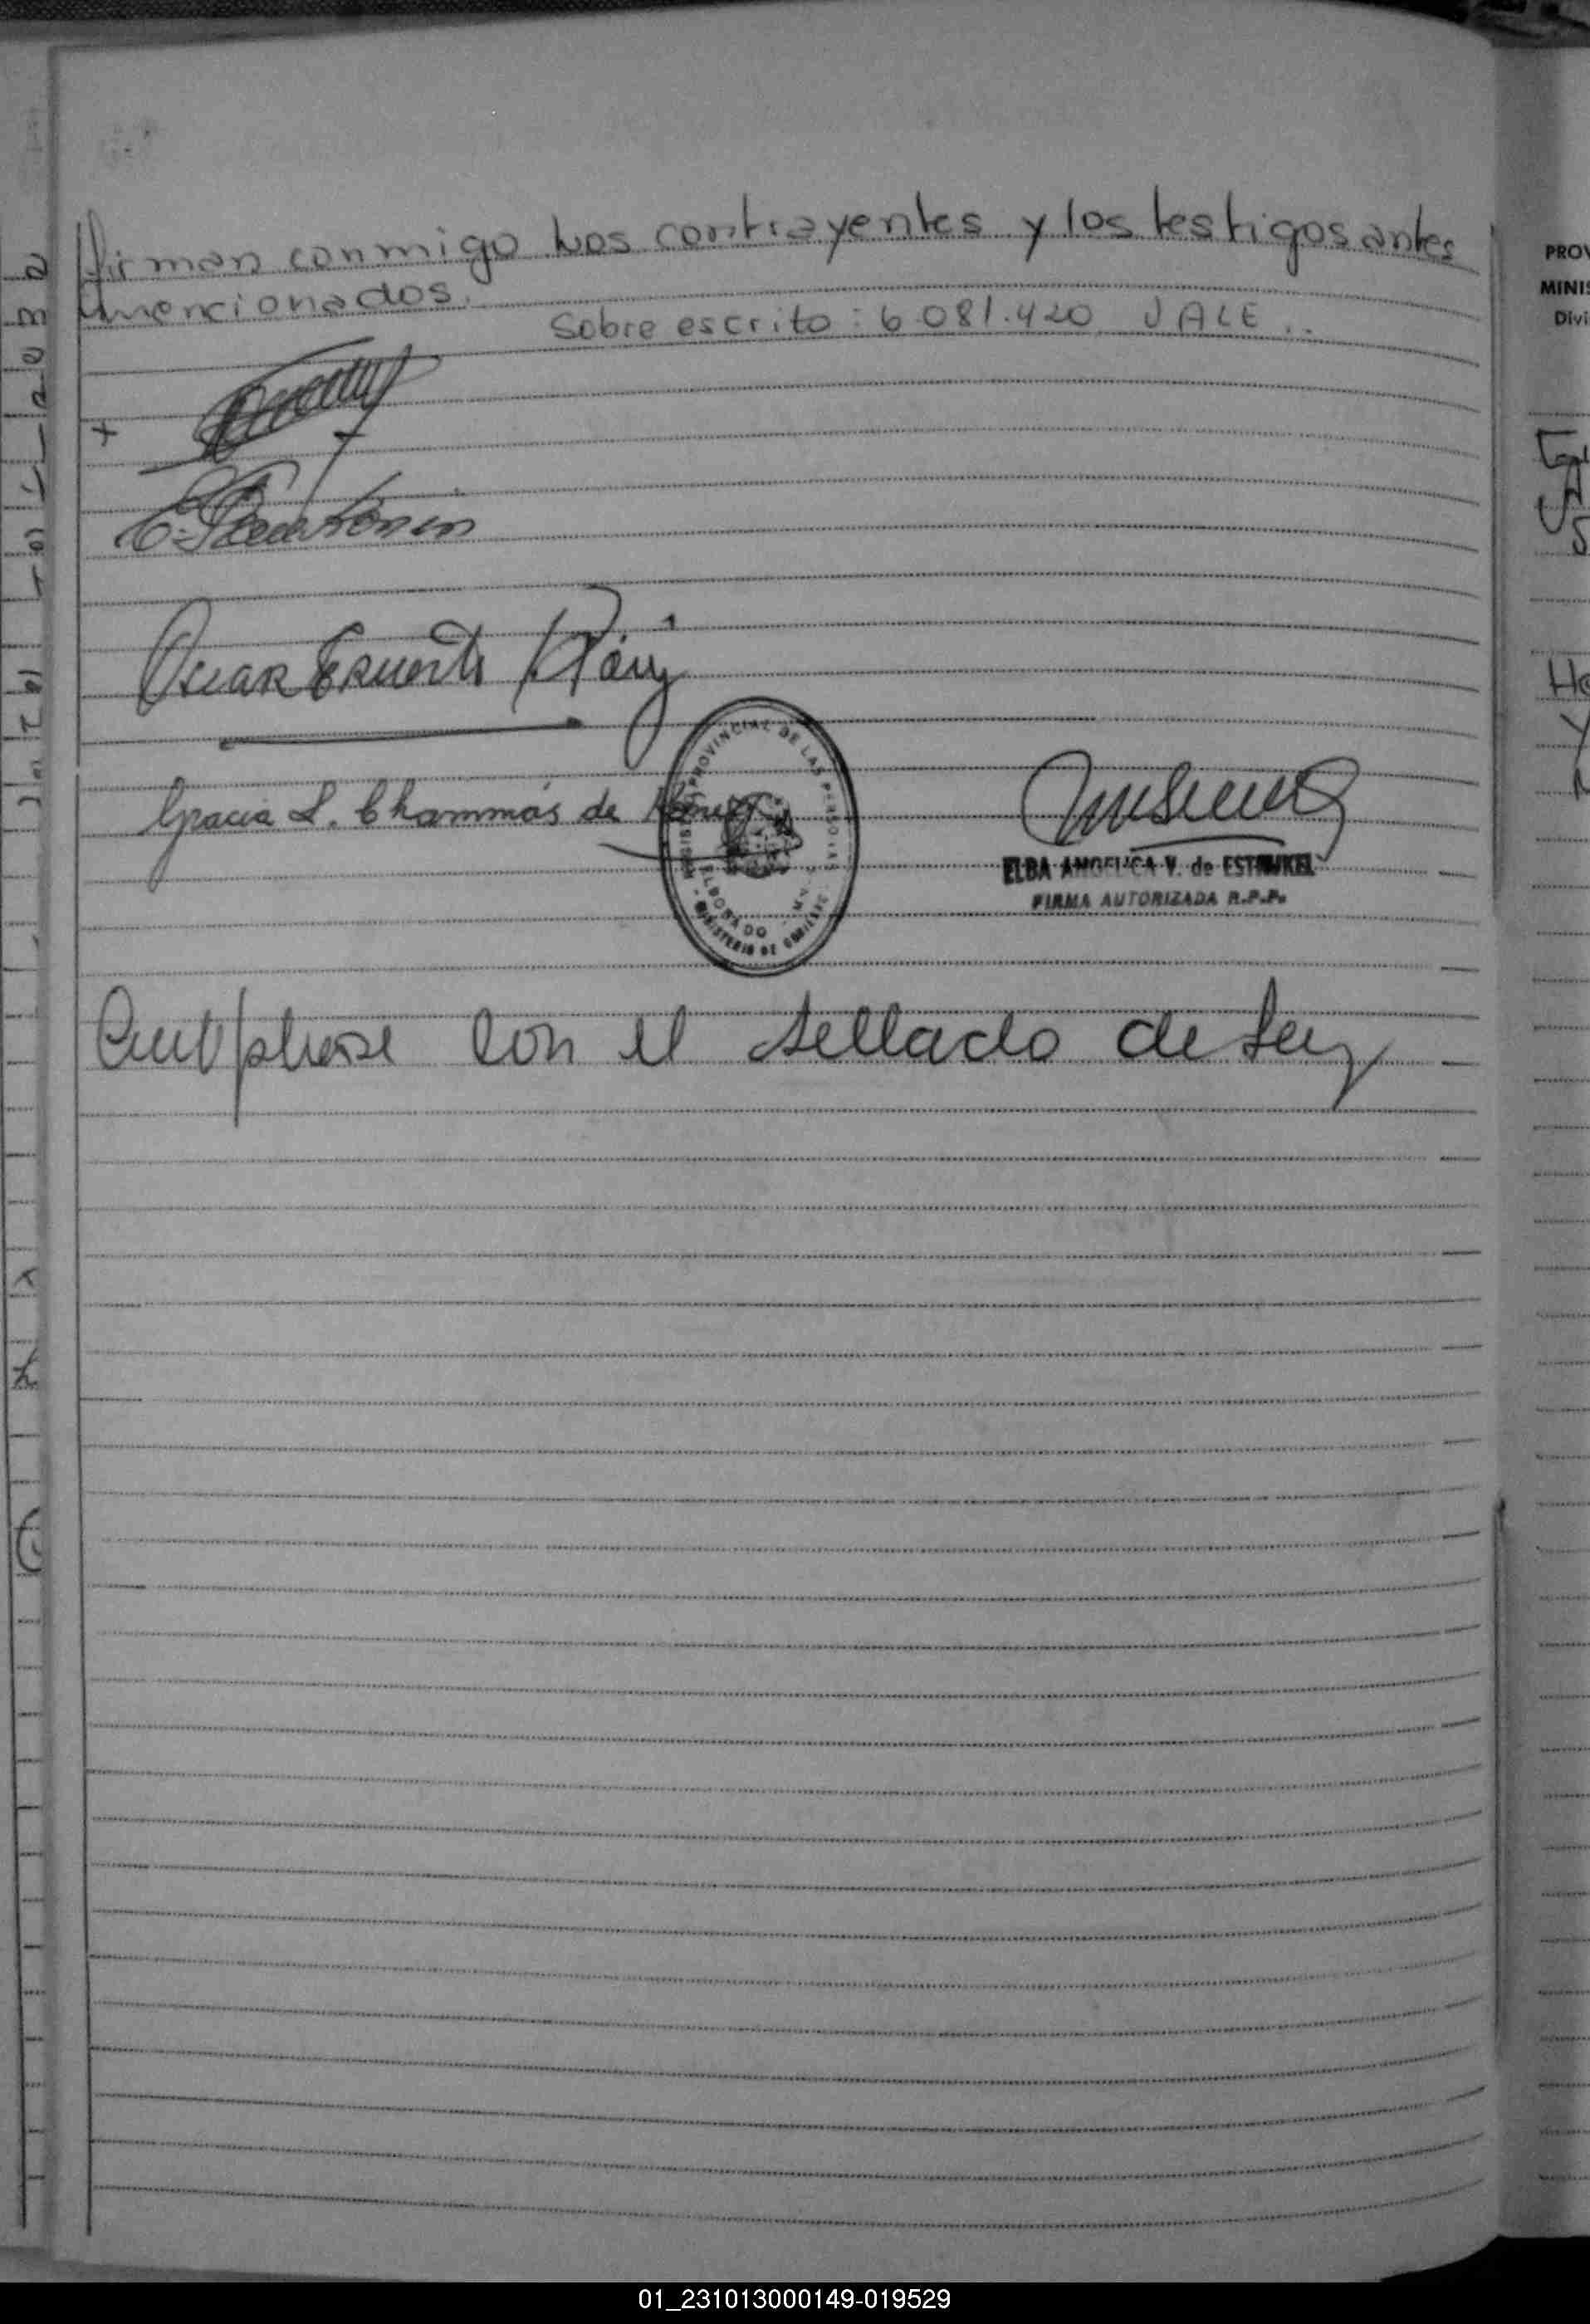 firman conmigo los contrayentes y los testigos antes
mencionados.
Sobre escrito: 6.081.420 VALE..
Oscar Ernesto
Gracia L. Chammás de
PROVINCIAL DE LAS PERSONAS
ELDORADO
MINISTERIO DE GOBIERNO
ELBA ANGELICA V. de
FIRMA AUTORIZADA R.P.P.
Cumplase con el sellado de Ley
PROV
MINIS
Divi
01_231013000149-019529